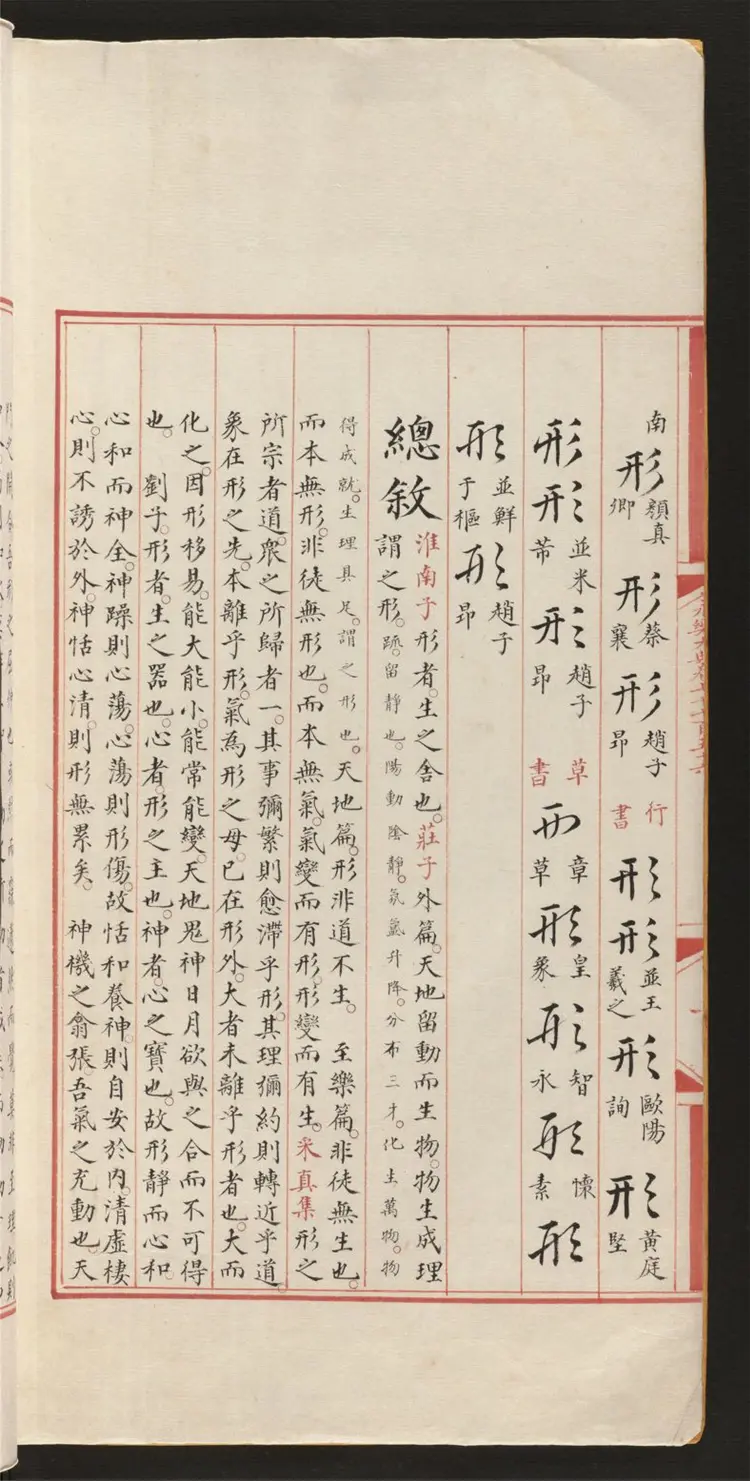 南形顏真卿形蔡襄形趙子昂行書形形並王羲之形歐陽詢形黃庭堅
形形並米芾形趙子昂草書形章草形皇象形智永形懷素形
形並鮮于樞形趙子昂
總敘
淮南子形者。生之舍也。莊子外篇。天地留動而生物。物生成理
謂之形。䟽。留靜也。陽動陰靜。氛氲升降。分布三才。化生萬物。物
得成就。生理具足。謂之形也。天地篇。形非道不生。 至樂篇。非徒無生也。
而本無形。非徒無形也。而本無氣。氣變而有形。形變而有生。采真集形之
所宗者道。衆之所歸者一。其事彌繁則愈滯乎形。其理彌約則轉近乎道。
象在形之先。本離乎形。氣為形之母。已在形外。大者未離乎形者也。大而
化之。因形移易。能大能小。能常能變。天地鬼神日月欲與之合而不可得
也。 劉子。形者。生之器也。心者。形之主也。神者。心之寶也。故形靜而心和。
心和而神全。神躁則心蕩。心蕩則形傷。故恬和養神。則自安於内。清虛棲
心。則不誘於外。神恬心清。則形無累矣。 神機之翕張。吾氣之充動也。天